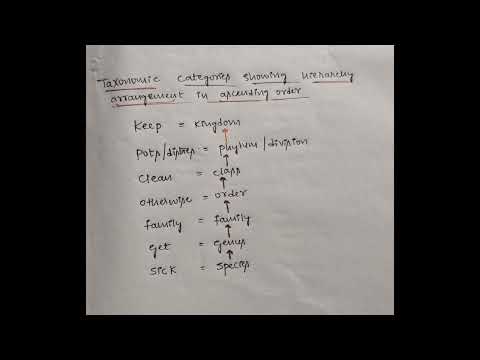 Taxonomic categories showing hierarchy
arrangement in ascending order
Keep = Kingdom
Pots/dishes = phylum/division
clean = class
otherwise = order
family = family
get = genus
sick = species